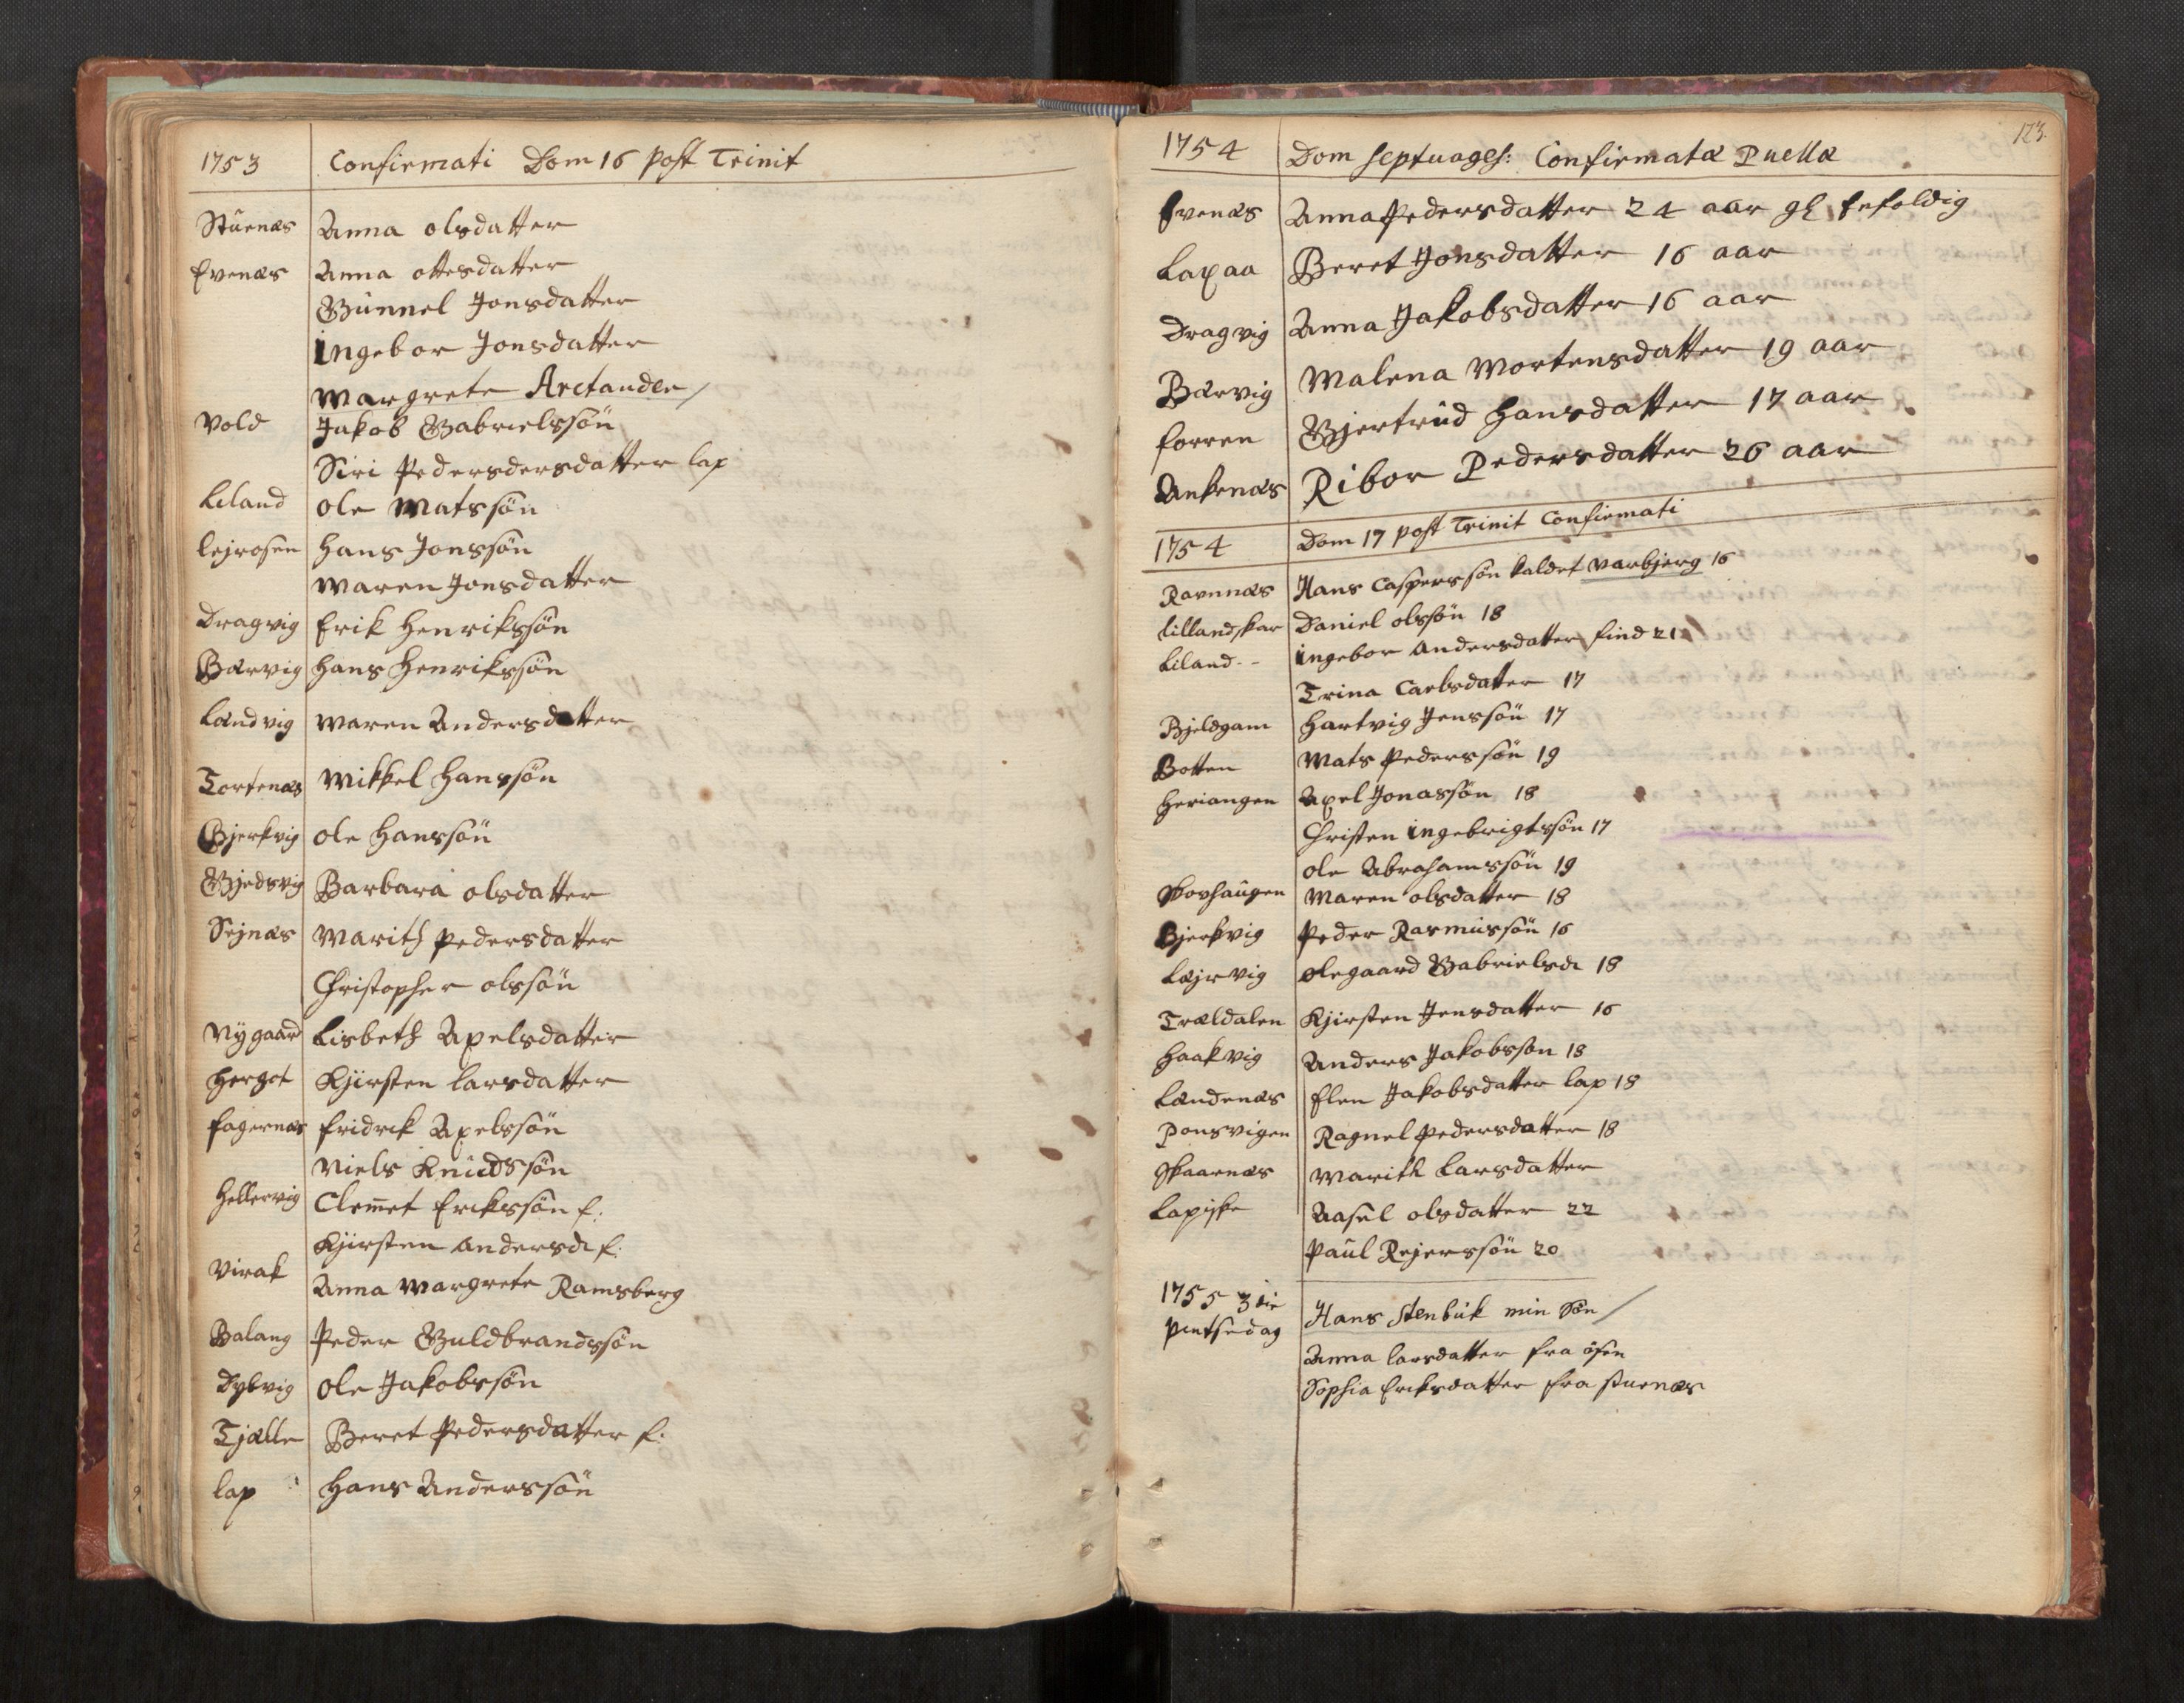 1753 Confirmati Dom 16 post Trinit
Stuenæs Anna olsdatter
Evenæs Anna ottesdatter
Gunnel Jonsdatter
Ingebor Jonsdatter
Margrete Arctander
Vold Jakob Gabrielssøn
Siri Pedersdersdatter lap
Liland ole Matssøn
lejrosen Hans Jonssøn
Maren Jonsdatter
Dragvig Erik Henrikssøn
Bærvig Hans Henrikssøn
Lændvig Maren Andersdatter
Tortenæs Mikkel Hanssøn
Bjerkvig ole Hanssøn
Gjedsvig Barbara olsdatter
Sejnæs Marith Pedersdatter
Christopher olssøn
Nygaard Lisbeth Axelsdatter
Hergot Kjirsten larsdatter
fagernæs fridrik Axelssøn
Niels Knudssøn
Hellervig Clem̅et Erikssøn f:
Kjirsten Andersd f:
Virak Anna Margrete Ramsberg
Balang Peder Guldbrandssøn
Dybvig ole Jakobssøn
Tjælle Beret Pedersdatter f:
lap Hans Anderssøn
123.
1754 Dom septuages: Confirmatæ Puellæ
Evenæs Anna Pedersdatter 24 aar gl Enfoldig
Laxaa Beret Jonsdatter 16 aar
Dragvig Anna Jakobsdatter 16 aar
Bærvig Malena Mortensdatter 19 aar
forren Gjertrud Hansdatter 17 aar
Ankenæs Ribor Pedersdatter 26 aar
1754 Dom 17 post Trinit Confirmati
Ravnnæs Hans Casperssøn kaldet Varbjerg 16
lillandskar Daniel olssøn 18
Liland -- Ingebor Andersdatter find 21
Trina Carlsdatter 17
Bjeldgam Hartvig Jenssøn 17
Botten Mats Pederssøn 19
Heriangen Axel Jonassøn 18
Christen Ingebrigtssøn 17
ole Abrahamssøn 19
Skovhaugen Maren olsdatter 18
Bjerkvig Peder Rasmussøn 16
Læjrvig olegaard Gabrielsd 18
Trældalen Kjirsten Jensdatter 16
Haakvig Anders Jakobssøn 18
Lændenæs Elen Jakobsdatter lap 18
Ponsvigen Ragnel Pedersdatter 18
Skaarnæs Marith Larsdatter
Lapiske Aasel olsdatter 22
Paul Rejerssøn 20
1755 3die Hans Stenbuk min Søn
Pintsedag
Anna larsdatter fra øsen
Sophia Eriksdatter fra stuenæs